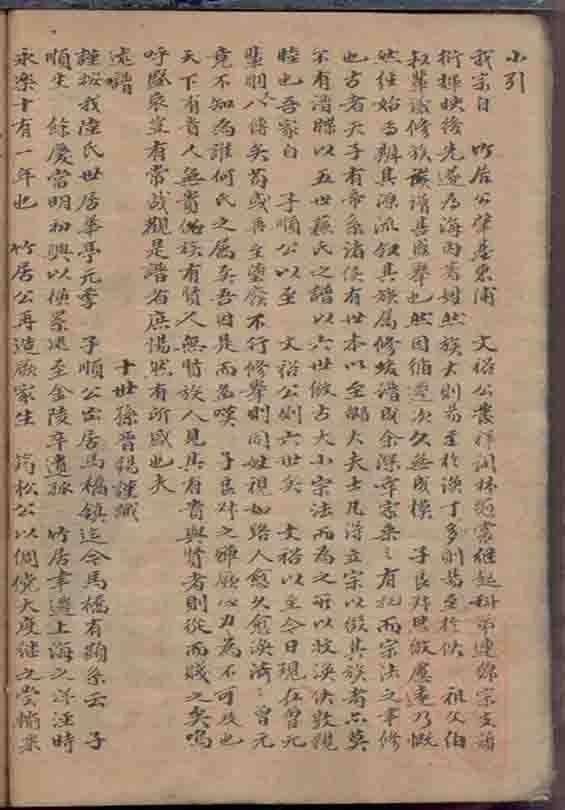 小引
我宗自　竹居公肇基東浦　文裕公叢祥詞林邇當繼起科第連綿宗支蕃
衍輝映後先遂為海內著姓然族大則易至於渙丁多則易至於佚　祖父伯
叔輩議修族譜甚盛舉也然因循遷次久無成模　子良
然任始為辨其源流敘其族屬修成余深幸宗系之有紀而宗法之事修
也古者天子有帝系諸侯有世本以至卿大夫士凡得立宗以傲其族者亦莫
不有譜牒以五世蘇氏之譜以六世倣古大小宗法而為之所以收渙佚敦親
睦也吾家自　子順公以至　文裕公則六世矣　文裕以至今日現在曾元
輩則八傳矣苟或再至墜廢不行修舉則同姓視如路人愈久愈渙濟濟曾元
竟不知為誰何氏之屬矣吾因是而益嘆　子良之雄願心力為不可及也
天下有貴人無貴族有賢人無賢族人見其有貴與賢者則從而賤之矣嗚
呼盛衰豈有常哉觀是譜者庶惕然有所感也夫
十世孫晉錫謹識
述譜
謹按我陸氏世居華亭元季　子順公出居馬橋鎮迄今馬橋有顯系云　子
順生　餘慶當明初興以橫累逃至金陵卒遺孤　竹居幸遷上海之洋涇時
永樂十有一年也　竹居公再造厥家生　筠松公以倜儻大度繼之嘗